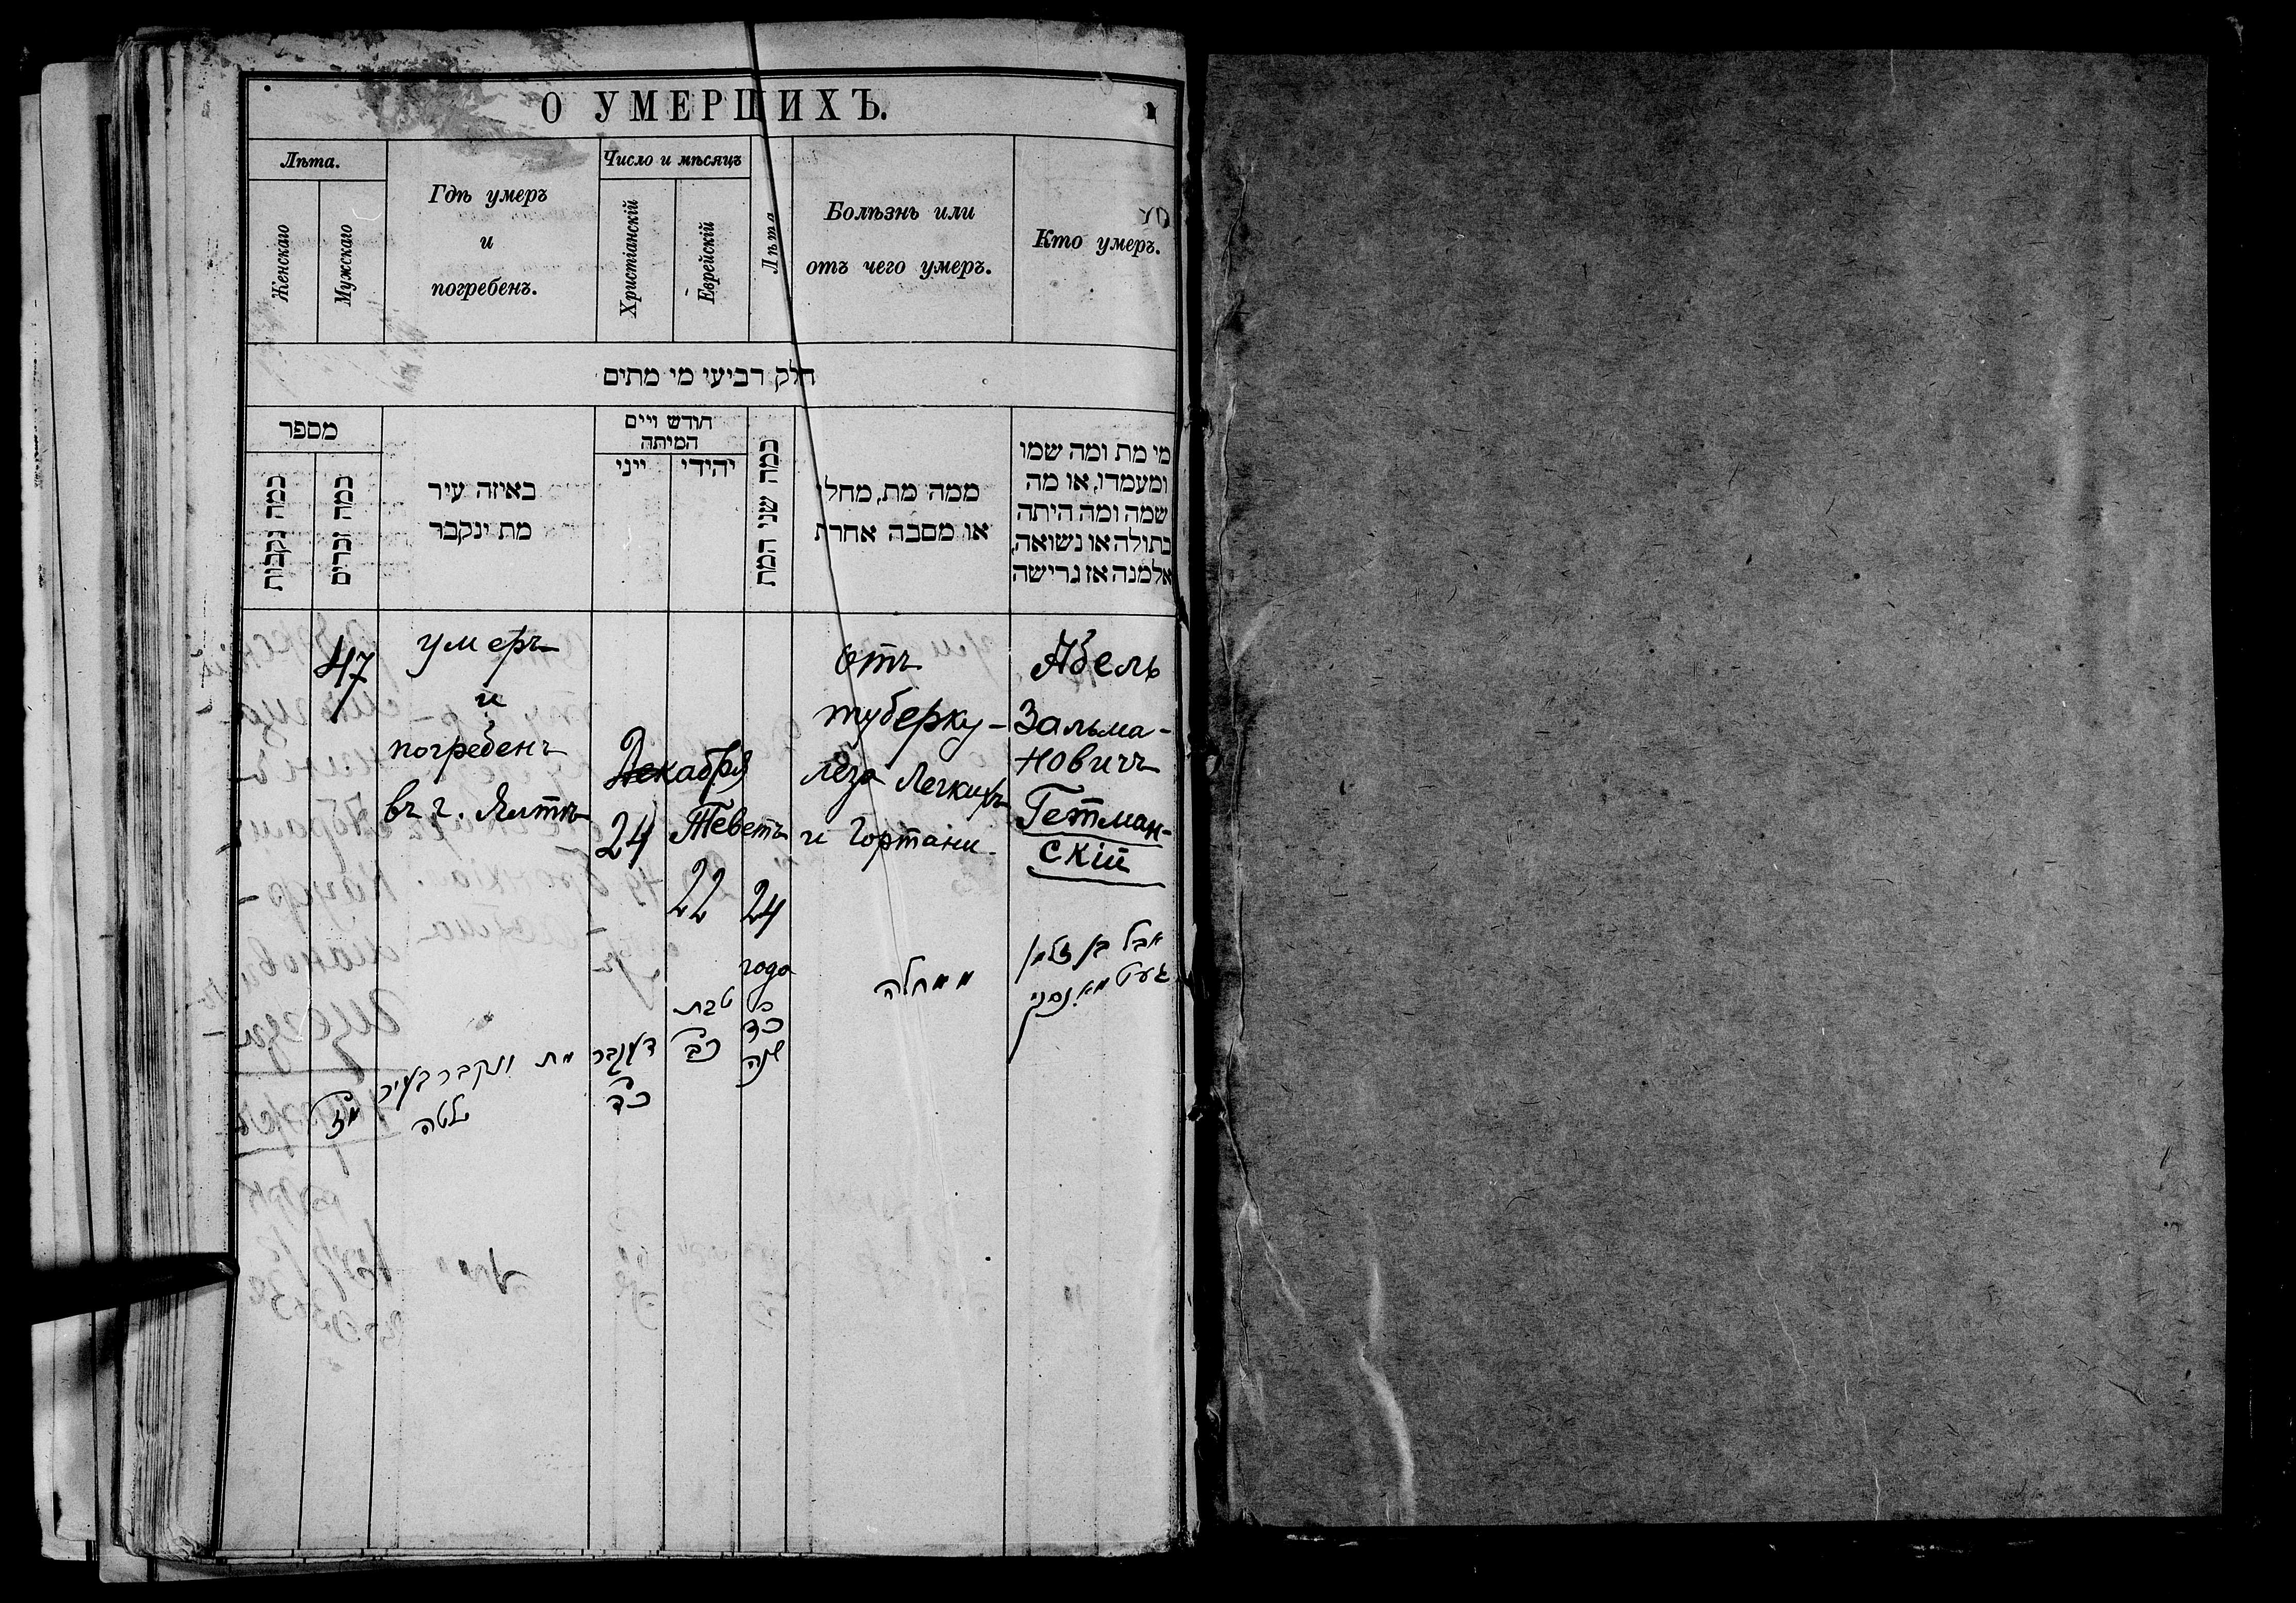 О УМЕРШИХЪ.
Лѣта.
Женскаго
Мужскаго
Гдѣ умеръ
и
погребенъ.
Число и мѣсяцъ
Христіанскій
Еврейскій
Лѣта
Болѣзнь или
отъ чего умеръ.
Кто умеръ.
חלק רביעי מי מתים
מספר
כמה נקבות
כמה זכרים
באיזה עיר
מת ינקבר
חודש ויים
המיתה
ייני
יהודי
כמה שני המת
ממה מת, מחלי
או מסבה אחרת
מי מת ומה שמו
ומעמדו, או מה
שמה ומה היתה
בתולה או נשואה,
אלמנה אז גרישה
47
умеръ
и
погребенъ
въ г. Ялтѣ
Декабря
24
Теветъ
22
24
года
отъ
туберку-
леза Легкихъ
и Гортани.
Абель
Зальма-
новичъ
Гетман-
скій
אבל בן זלמן
געטמאנסקי
ממחלה
כד
שנה
טבת
כב
דעקבר
כד
מת ונקבר בעיר
יאלטה
מז